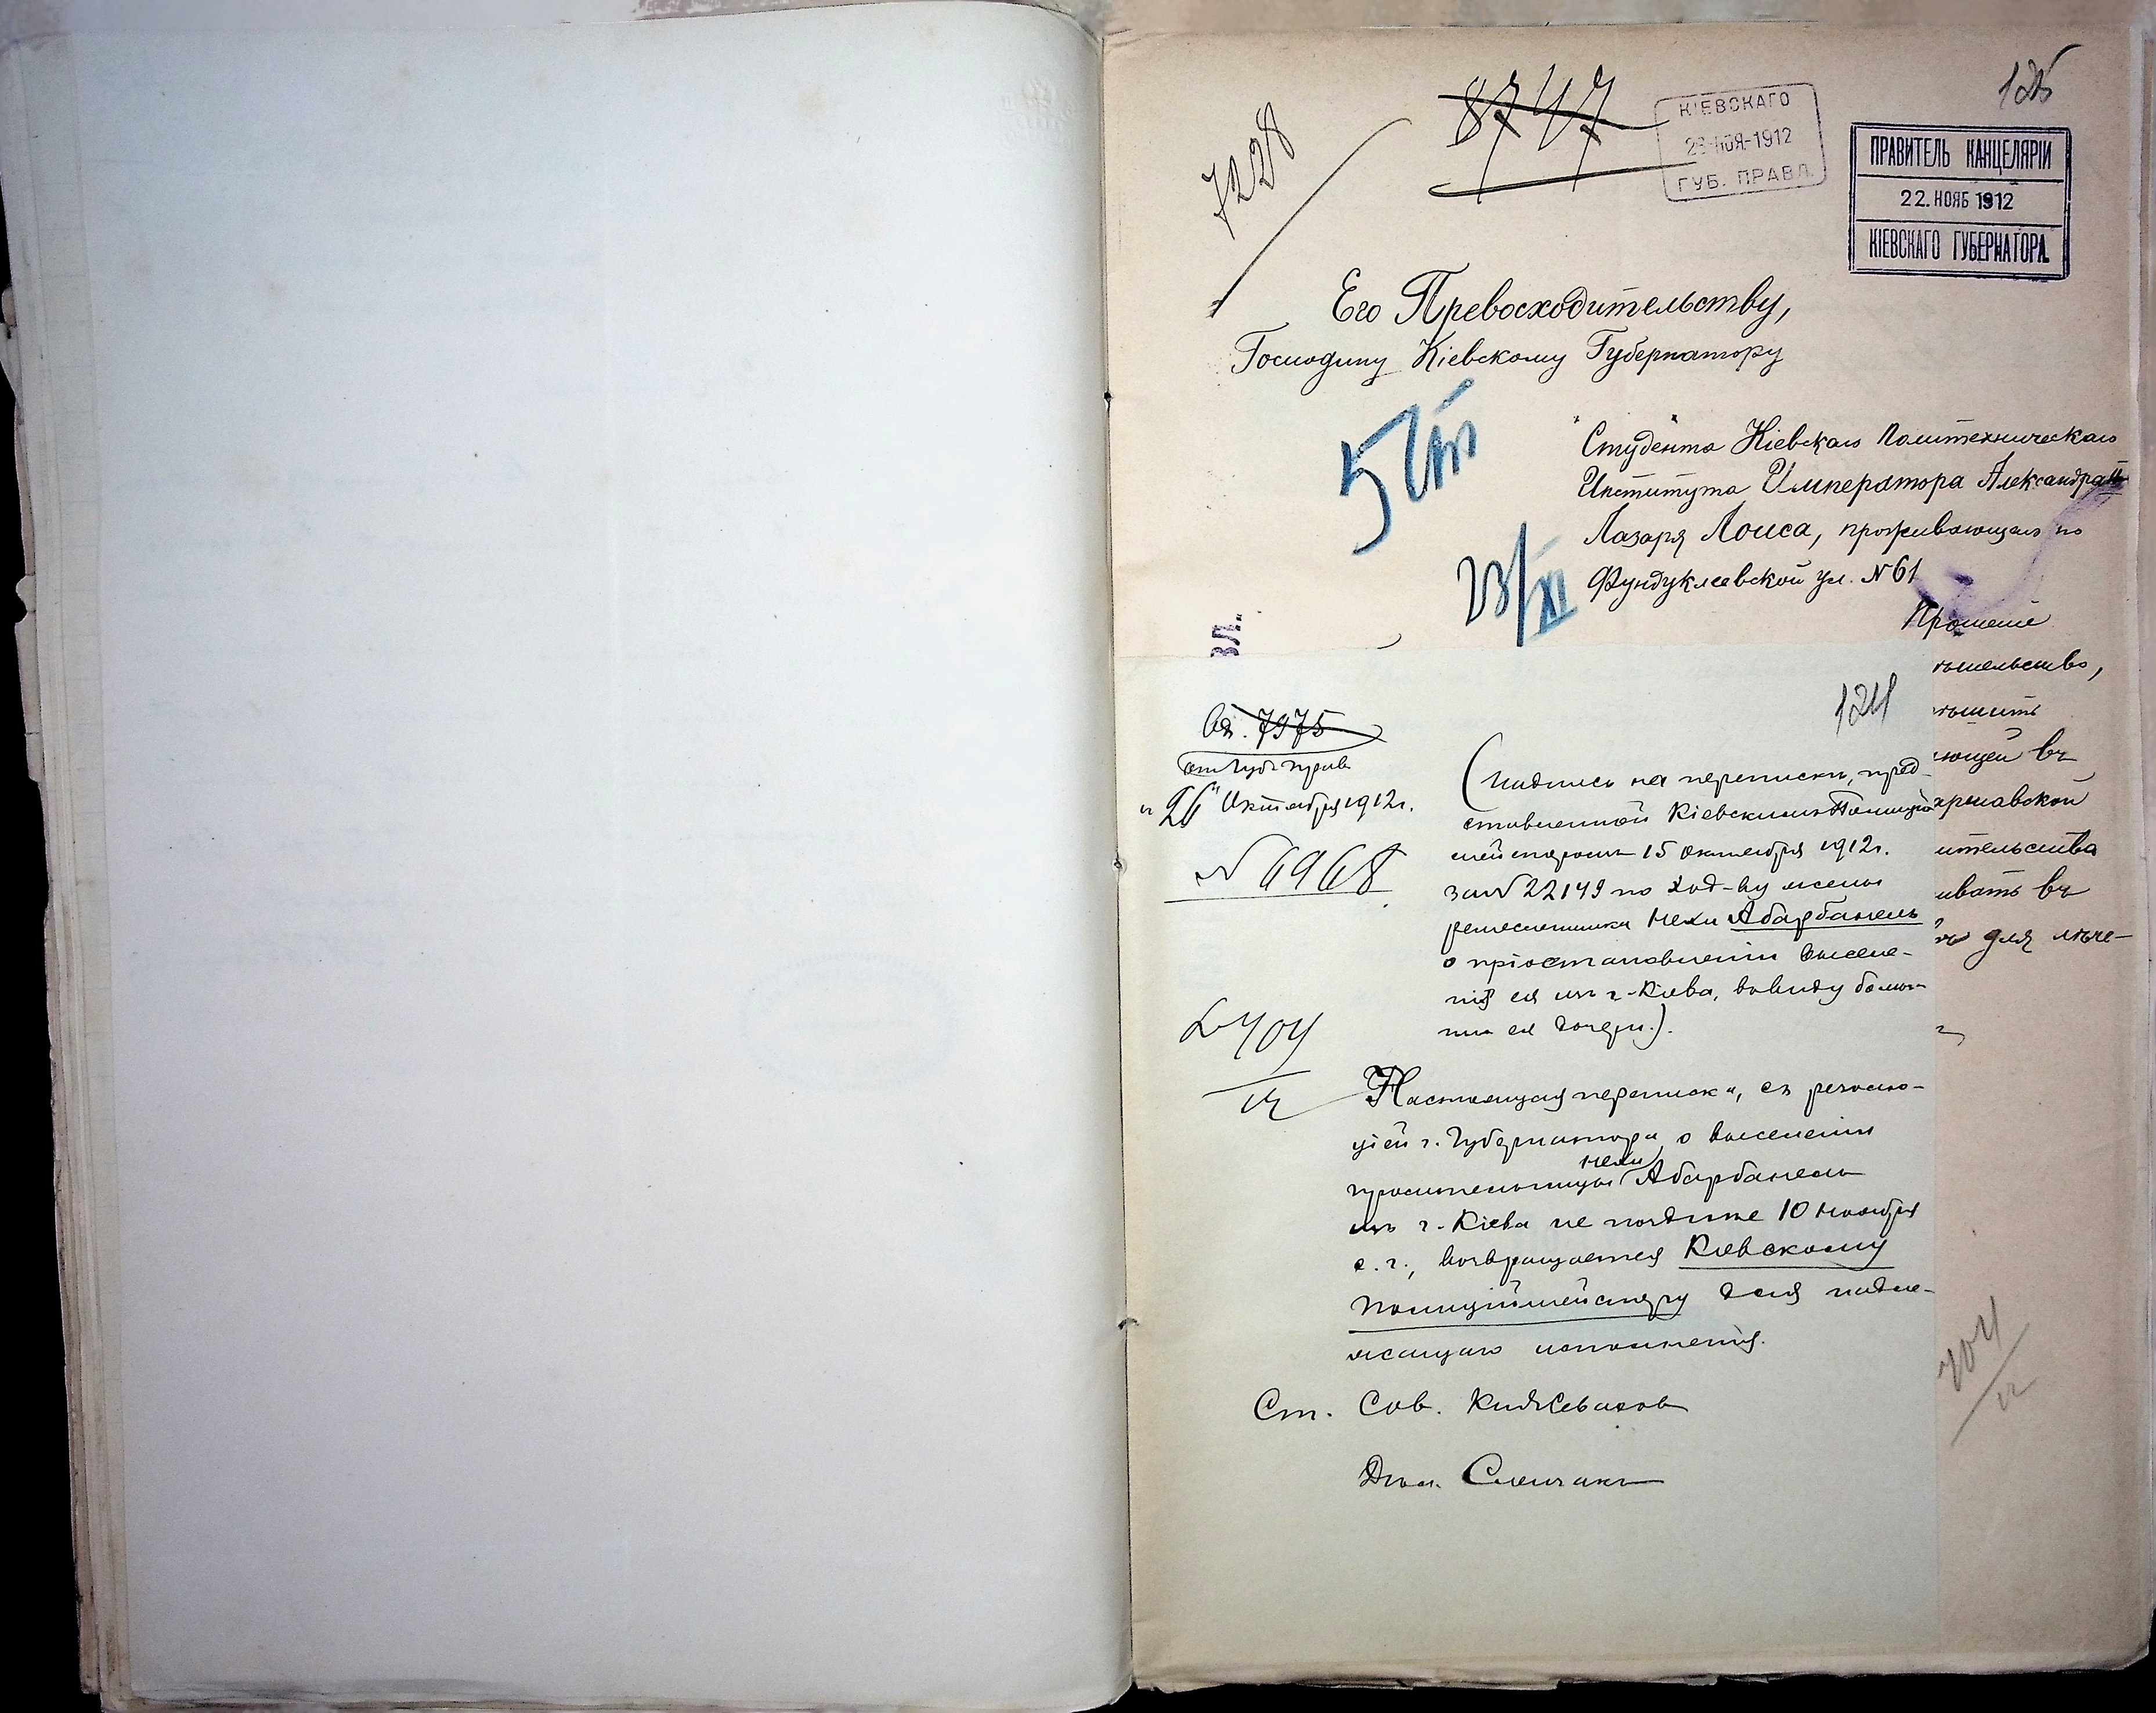 125
7228
8747
КІЕВСКАГО
НОЯ-1912
ГУБ. ПРАВЛ.
ПРАВИТЕЛЬ КАНЦЕЛЯРІИ
22. НОЯБ 1912
КІЕВСКАГО ГУБЕРНАТОРА.
Его Превосходительству,
Господину Кіевскому Губернатору
5 ст
23/XI
Студента Кіевскаго Политехническаго
Института Императора Александра II
Лазаря Лоиса, проживающаго по
Фундуклеевской ул. № 61
Прошеніе
124
Вх. 7975
от Губ. Прав
"26" Октября 1912 г.
№ 6968
(Надпись на перепискѣ, пред-
ставленной Кіевскимъ Полицій-
мейстеромъ 15 октября 1912 г.
за № 22149 по ход-ву жены
ремесленника Нехи Абарбанель
о пріостановленіи выселе-
нія ея изъ г. Кіева, ввиду болѣз-
ни ея дочери.).
704
12
Настоящая переписка, съ резолю-
ціей г. Губернатора о выселеніи
просительницы Нехи Абарбанель
изъ г. Кіева не позднѣе 10 ноября
с. г., возвращается Кіевскому
Полиціймейстеру для надле-
жащаго исполненія.
Ст. Сов.
Дѣл.
тельство,
ющей въ
ительства
ивать въ
для лѣче-
704
12